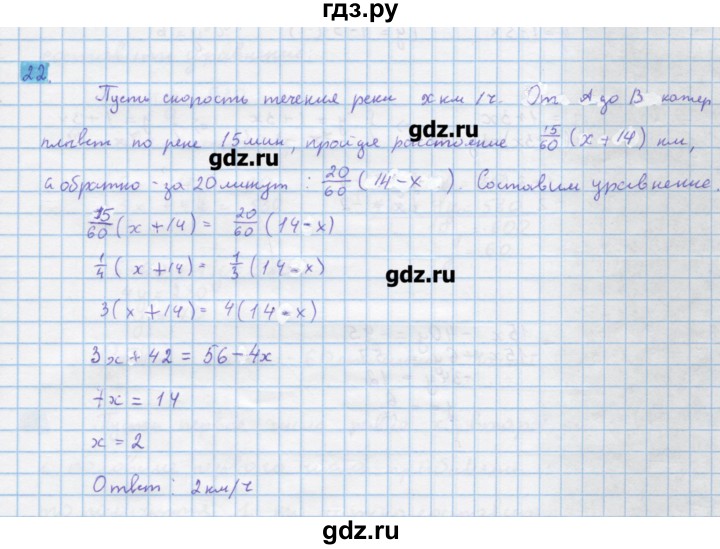 гдз.ру
22.
Пусть скорость течения реки x км/ч. От A до B катер
плывет по реке 15 мин, пройдя расстояние 15/60 (x + 14) км,
gdz.ru
gdz.ru
а обратно - за 20 минут : 20/60 (14 - x ). Составим уравнение.
15/60 (x + 14) = 20/60 (14 - x)
1/4 (x + 14) = 1/3 (14 - x)
gdz.ru
3(x + 14) = 4(14 - x)
3x + 42 = 56 - 4x
gdz.ru
7x = 14
x = 2
Ответ: 2 км/ч
gdz.ru